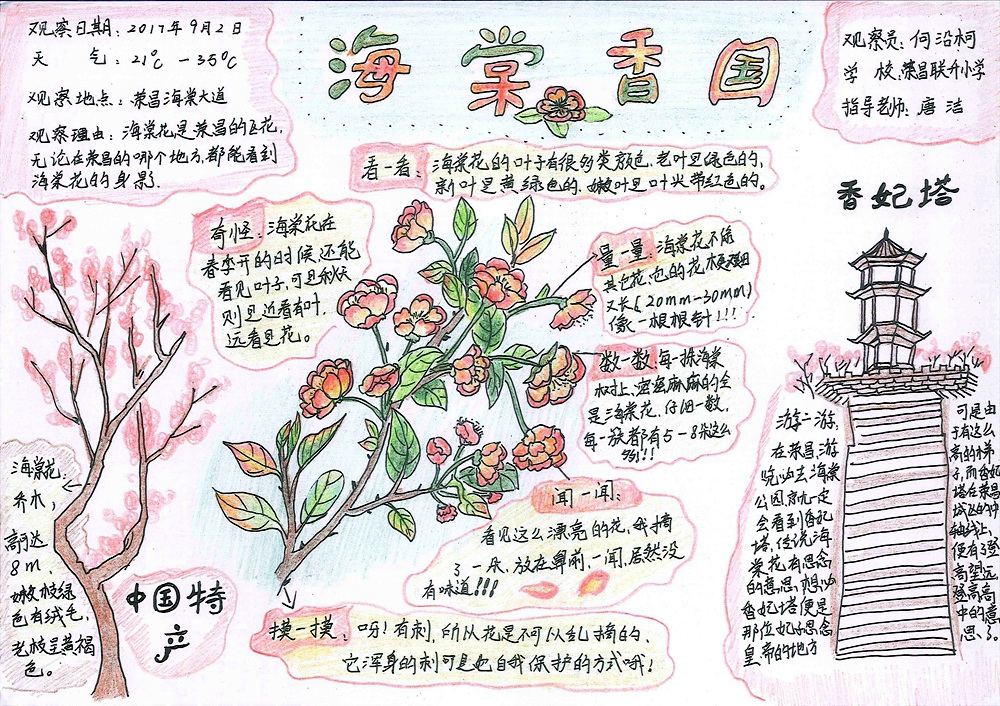 观察日期：2017年9月2日
天 气：21℃－35℃
观察地点：荣昌海棠大道
观察理由：海棠花是荣昌的区花，
无论在荣昌的哪个地方，都能看到
海棠花的身影.
海棠香国
观察员：何沿柯
学 校：荣昌联升小学
指导老师：唐 洁
看一看：海棠花的叶子有很多类颜色，老叶呈绿色的，
新叶呈黄绿色的，嫩叶呈叶尖带红色的。
奇怪：海棠花在
春季开的时候，还能
看见叶子，可是秋天
则是近看有叶，
远看是花。
量一量：海棠花不像
其它花，它的花梗又细
又长（20mm-30mm）
像一根根针！！！
数一数：每一株海棠
树上，密密麻麻的全
是海棠花，仔细一数，
每一簇都有5-8朵这么
多！！！
闻一闻：
看见这么漂亮的花，我摘
了一朵，放在鼻前，一闻，居然没
有味道！！！
摸一摸：呀！有刺，所以花是不可以乱摘的，
它浑身的刺可是它自我保护的方式哦！
海棠花：
乔木，
高可达
8m，
嫩枝绿
色有绒毛，
老枝呈黄褐
色。
中国特
产
香妃塔
游一游：
在荣昌游
览，必去海棠
公园，就一定
会看到香妃
塔，传说海
棠花有思念
的意思，想必
香妃塔便是
那位妃子思念
皇帝的地方
可是由
于有这么
高的梯
子，而香妃
塔在荣昌
城区的中
轴线上，
便有了登
高望远
登高高
中的意
思了。